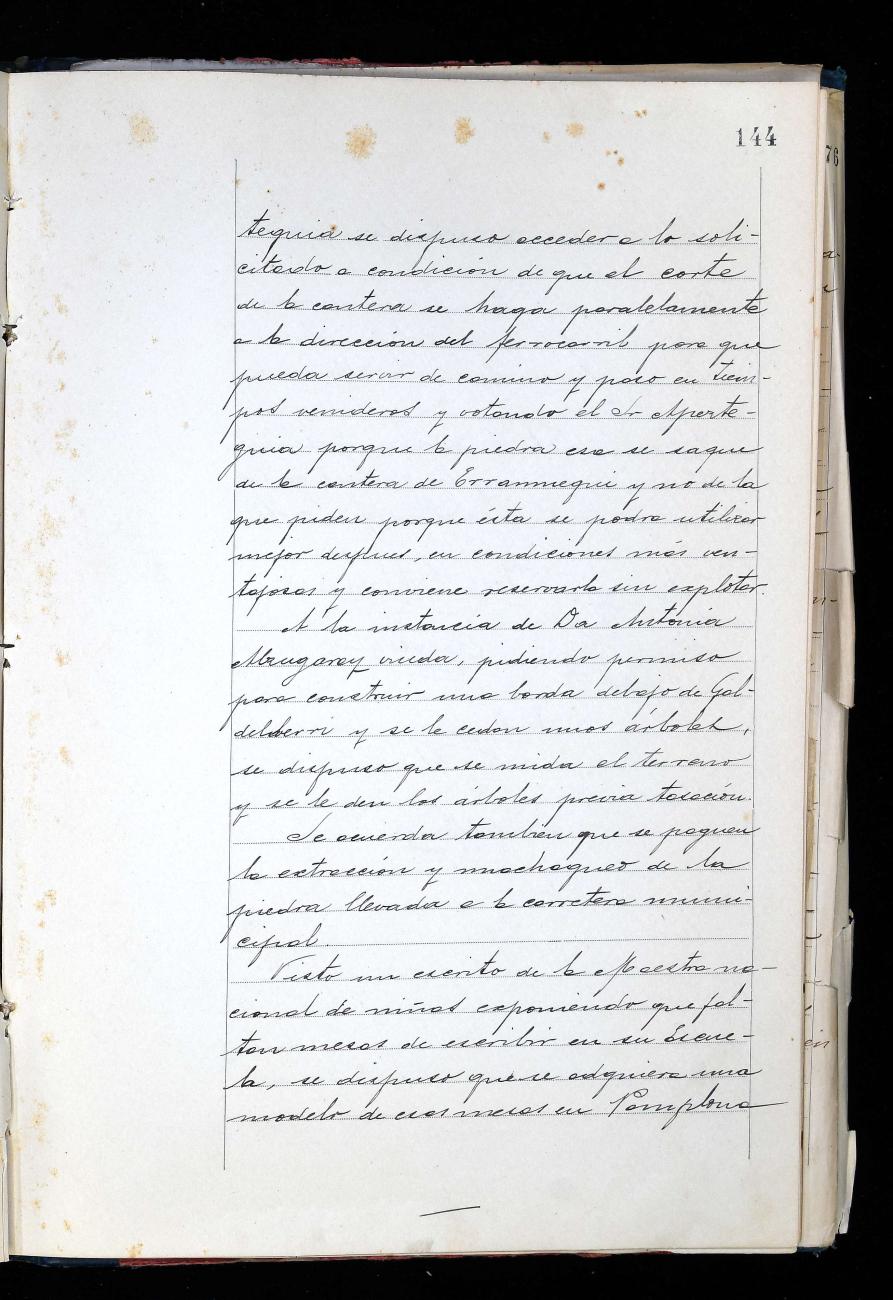 144
76
teguia se dispuso acceder a lo soli-
citado a condición de que el corte
de la cantera se haga paralelamente
a la dirección del ferrocarril para que
pueda servir de camino y paso en tiem-
pos venideros y votando el Sr Aperte-
guia porque la piedra esa se saque
de la cantera de Erranmegui y no de la
que piden porque ésta se podra utilizar
mejor despues, en condiciones más ven-
tajosas y conviene reservarla sin explotar.
A la instancia de Da Antonia
Mzugaray viuda, pidiendo permiso
para construir una borda debajo de Gal-
delberri y se le cedan unos árboles,
se dispuso que se mida el terreno
y se le den los árboles previa tasación.
Se acuerda tambien que se paguen
la extracción y machaqueo de la
piedra llevada a la carretera muni-
cipal.
Visto un escrito de la Maestra na-
cional de niñas exponiendo que fal-
tan mesas de escribir en su Escue-
la, se dispuso que se adquiera una
modelo de esas mesas en Pamplona